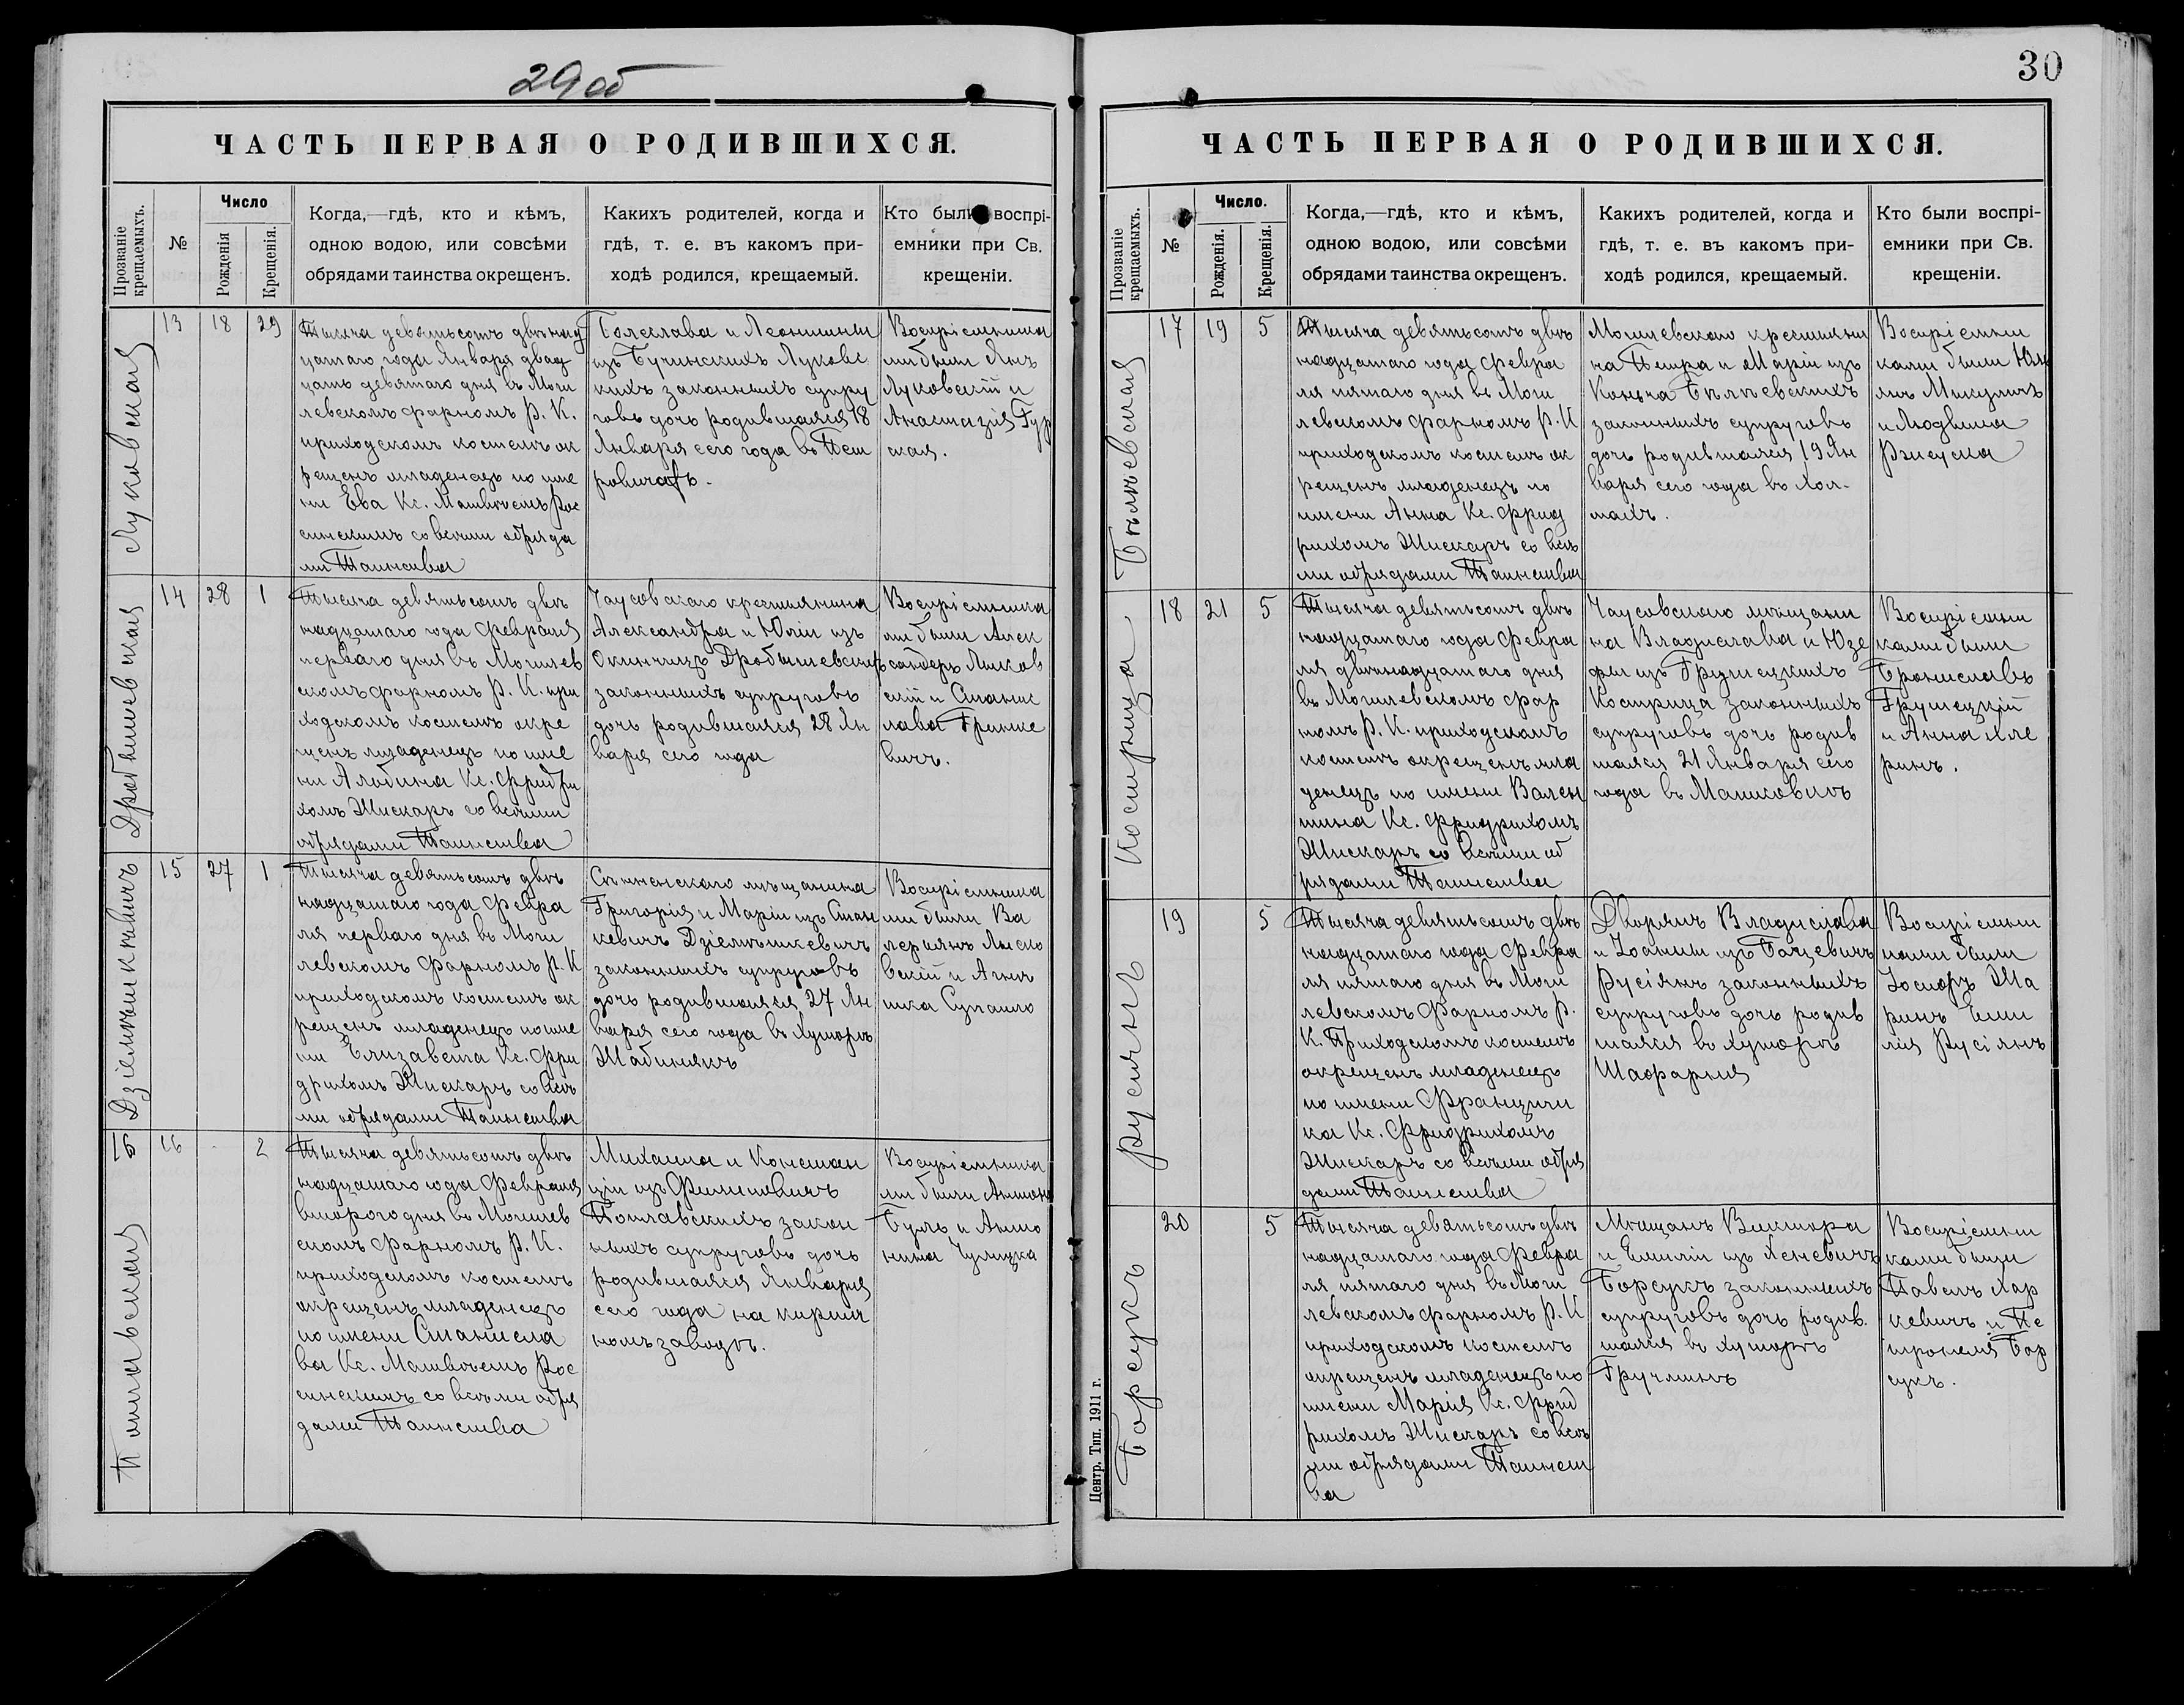 29 об
ЧАСТЬ ПЕРВАЯ О РОДИВШИХСЯ.
Прозваніе крещаемыхъ.
№
Число
Рожденія
Крещенія.
Когда,—гдѣ, кто и кѣмъ,
одною водою, или совсѣми
обрядами таинства окрещенъ.
Какихъ родителей, когда и
гдѣ, т. е. въ какомъ при-
ходѣ родился, крещаемый.
Кто были воспрі-
емники при Св.
крещеніи.
Луковская
13 18 29
Тысяча девятьсотъ двѣнад
цатаго года Января двад
цать девятаго дня въ Моги
левскомъ фарномъ Р. К.
приходскомъ костелѣ ок
рещенъ младенецъ по име
ни Ева Кс. Матвѣемъ Рос
синскимъ со всѣми обряда
ми Таинства
Болеслава и Леонтины
изъ Бучинскихъ Луковс
кихъ законныхъ супру
говъ дочь родившаяся 18
Января сего года въ Пет
ровичахъ.
Воспріемника
ми были Янъ
Луковскій и
Анастазія Гур
ская.
Дробышевская
14 28 1
Тысяча девятьсотъ двѣ
надцатаго года Февраля
перваго дня въ Могилев
скомъ фарномъ Р. К. при
ходскомъ костелѣ окре
щенъ младенецъ по име
ни Альбина Кс. Фридри
хомъ Жискаръ со всѣми
обрядами Таинства
Чаусовскаго крестьянина
Александра и Юліи изъ
Окинчицъ Дробышевскихъ
законныхъ супруговъ
дочь родившаяся 28 Ян
варя сего года
Воспріемника
ми были Алек
сандеръ Лисков
скій и Станис
лава Гриние
вичъ.
Дзіелмѣшкѣвичъ
15 27 1
Тысяча девятьсотъ двѣ
надцатаго года Февра
ля перваго дня въ Моги
левскомъ Фарномъ Р. К
приходскомъ костелѣ ок
рещенъ младенецъ по име
ни Елизавета Кс. Фри
дрихомъ Жискаръ со всѣ
ми обрядами Таинства
Сѣнненскаго мѣщанина
Григорія и Маріи изъ Стан
кевичъ Дзіелмѣшкевичъ
законныхъ супруговъ
дочь родившаяся 27 Ян
варя сего года въ хуторѣ
Жабинянъ
Воспріемника
ми были Ва
леріянъ Лиско
вскій и Агнѣ
шка Супашо
16 2
Тысяча девятьсотъ двѣ
надцатаго года Февраля
второго дня въ Могилев
скомъ Фарномъ Р. К.
приходскомъ костелѣ
окрещенъ младенецъ
по имени Станисла
ва Кс. Матвѣемъ Рос
синскимъ со всѣми обря
дами Таинства
Михаила и Констан
ціи изъ Филиповичъ
закон
ныхъ супруговъ дочь
родившаяся Января
сего года на кирпич
номъ заводѣ.
Воспріемника
ми были Антонъ
Буль и Анто
нина Чулицка
30
ЧАСТЬ ПЕРВАЯ О РОДИВШИХСЯ.
Прозваніе крещаемыхъ.
№
Число.
Рожденія.
Крещенія.
Когда,—гдѣ, кто и кѣмъ,
одною водою, или совсѣми
обрядами таинства окрещенъ.
Какихъ родителей, когда и
гдѣ, т. е. въ какомъ при-
ходѣ родился, крещаемый.
Кто были воспрі-
емники при Св.
крещеніи.
Бѣлѣевская
17 19 5
Тысяча девятьсотъ двѣ
надцатаго года Февра
ля пятаго дня въ Моги
левскомъ фарномъ Р. К
приходскомъ костелѣ ок
рещенъ младенецъ по
имени Анна Кс. Фрид
рихомъ Жискаръ со всѣ
ми обрядами Таинства
Могилевскаго крестьяни
на Петра и Маріи изъ
Бѣлѣевскихъ
законныхъ супруговъ
дочь родившаяся 19 Ян
варя сего года въ Хол-
махъ.
Воспріемни
ками были Юль
янъ Микуличъ
и Людвига
Кострица
18 21 5
Тысяча девятьсотъ двѣ
надцатаго года Февра
ля двѣнадцатаго дня
въ Могилевскомъ фар
номъ Р. К. приходскомъ
костелѣ окрещенъ мла
денецъ по имени Вален
тина Кс. Фридрихомъ
Жискаръ со всѣми об
рядами Таинства
Чаусовскаго мѣщани
на Владислава и Юзе
фы изъ Грушецкихъ
Кострица законныхъ
супруговъ дочь родив
шаяся 21 Января сего
года въ Машковичъ
Воспріемни
ками были
Брониславъ
Грушецкій
и Анна Але
ринъ.
Русянъ
19 5
Тысяча девятьсотъ двѣ
надцатаго года Февра
ля пятаго дня въ Моги
левскомъ Фарномъ Р.
К. Приходскомъ костелѣ
окрещенъ младенецъ
по имени Францишка
Кс. Фридрихомъ
Жискаръ со всѣми обря
дами Таинства
Дворянъ Владислава
и Іоанны изъ Бацевичъ
Русіянъ законныхъ
супруговъ дочь родив
шаяся въ хуторѣ
Шафарня
Воспріемни
ками были
Іосифъ Жа
ринъ Еми
лія Русіянъ
Борсукъ
20 5
Тысяча девятьсотъ двѣ
надцатаго года Февра
ля пятаго дня въ Моги
левскомъ фарномъ Р. К
приходскомъ костелѣ
окрещенъ младенецъ по
имени Марія Кс. Фрид
рихомъ Жискаръ со всѣ
ми обрядами Таинст
ва
Мѣщанъ Виктора
и Емиліи изъ Леневичъ
Борсукъ законныхъ
супруговъ дочь родив.
шаяся въ хуторѣ
Воспріемни
ками были
Павелъ Хар
кевичъ и Пе
тронеля Бор
сукъ.
Центр. Тип. 1911 г.